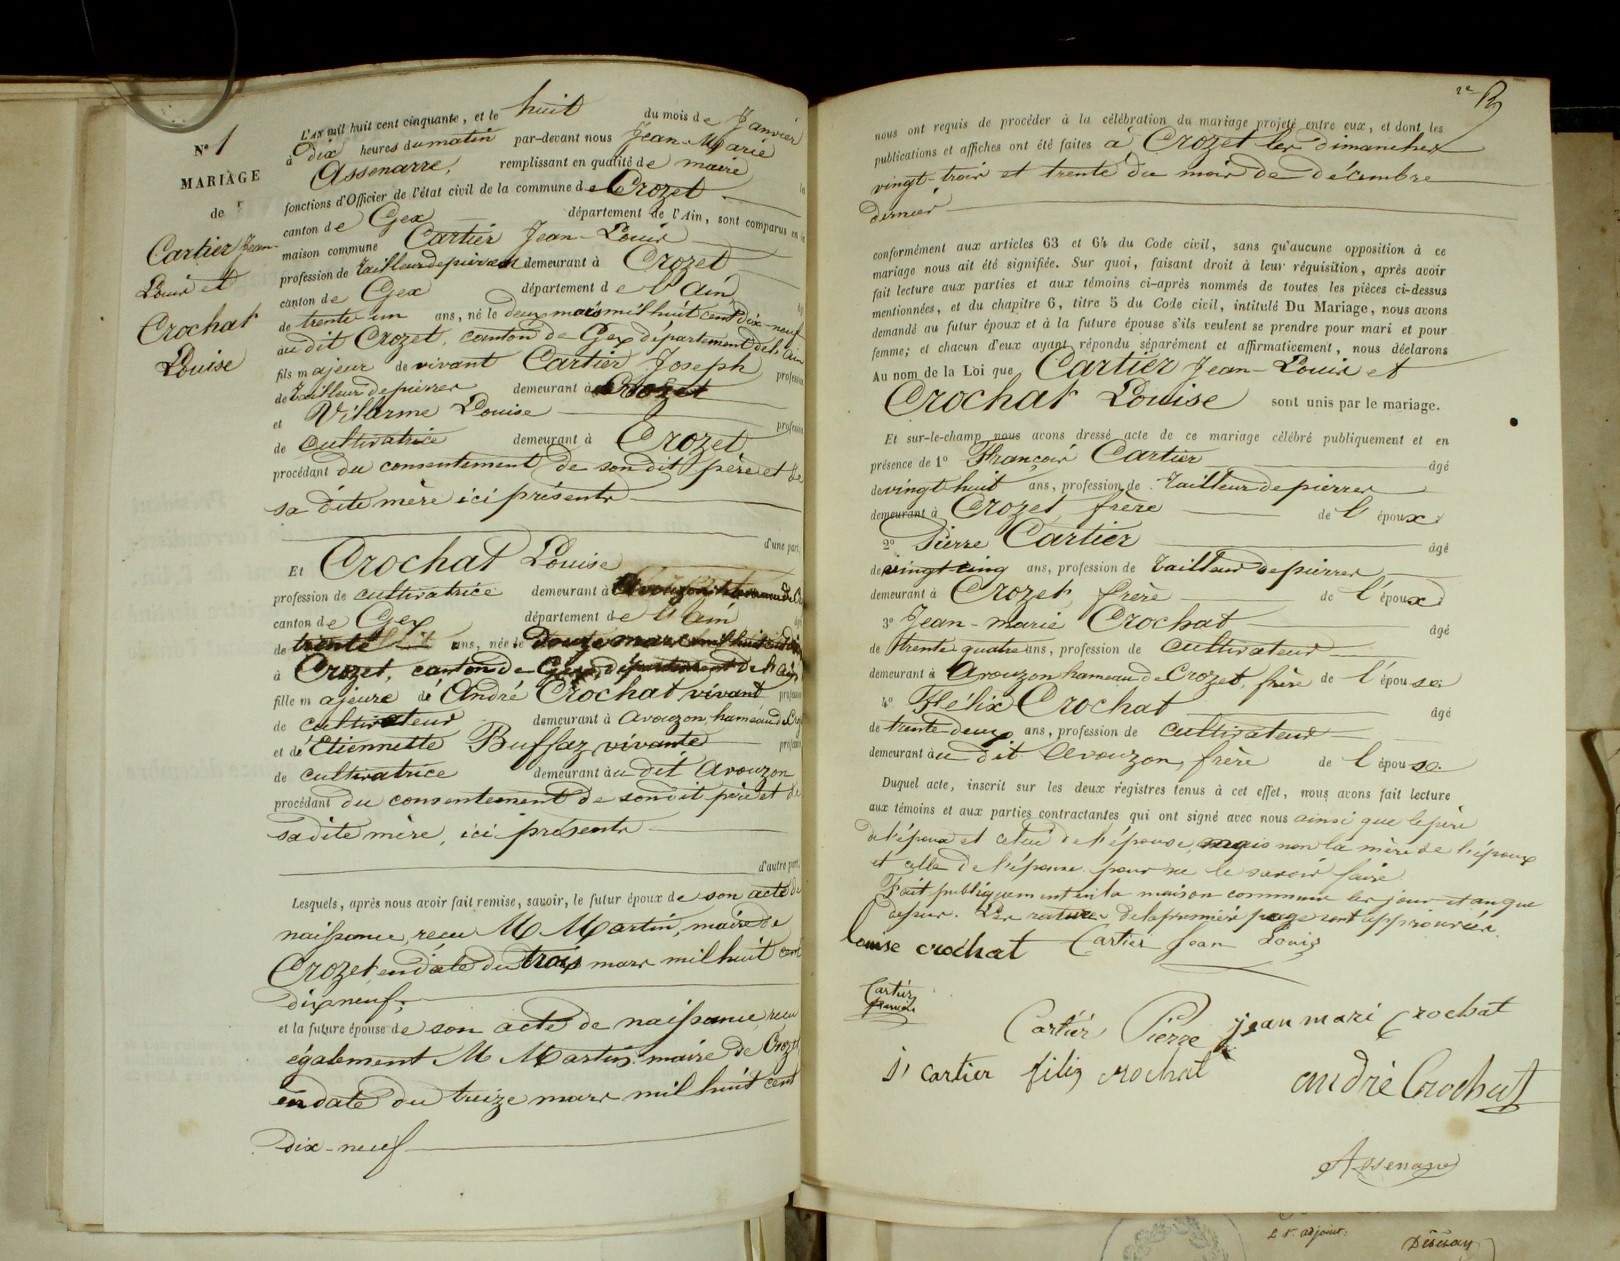 N° 1
MARIAGE
de
Cartier Jean-
Louis et
Crochat
Louise
L'AN mil huit cent cinquante, et le huit du mois de Janvier
à dix heures du matin par-devant nous Jean-Marie
Assenarre, remplissant en qualité de maire
fonctions d'Officier de l'état civil de la commune de Crozet
canton de Gex département de l'Ain, sont comparus en
maison commune Cartier Jean-Louis
profession de tailleur de pierres demeurant à Crozet
canton de Gex département de l'ain
de trente un ans, né le deux mars mil huit cent dix-neuf
au dit Crozet, canton de Gex département de l'ain
fils majeur de vivant Cartier Joseph profession
de tailleur de pierres demeurant à Crozet
et Vilarme Louise profession
de cultivatrice demeurant à Crozet
procédant du consentement de son dit père et de
sa dite mère ici présents
d'une part,
Et Crochat Louise
profession de cultivatrice demeurant à avouzon hameau de
canton de Gex département de l'ain
de trente ans, née le douze mars mil huit cent
à Crozet, canton de Gex, département de l'ain
fille majeure de André Crochat vivant profession
de cultivateur demeurant à avouzon, hameau de
et de Etiennette Buffaz vivante profession
de cultivatrice demeurant au dit avouzon
procédant du consentement de son dit père et de
sa dite mère, ici présents
d'autre part,
Lesquels, après nous avoir fait remise, savoir, le futur époux de son acte de
naissance, reçu M Martin, maire de
Crozet en date du trois mars mil huit cent
dix neuf,
et la future épouse de son acte de naissance, reçu
également M Martin maire de Crozet
en date du treize mars mil huit cent
dix-neuf
nous ont requis de procéder à la célébration du mariage projeté entre eux, et dont les
publications et affiches ont été faites à Crozet les dimanches
vingt-trois et trente du mois de décembre
dernier
conformément aux articles 63 et 64 du Code civil, sans qu'aucune opposition à ce
mariage nous ait été signifiée. Sur quoi, faisant droit à leur réquisition, après avoir
fait lecture aux parties et aux témoins ci-après nommés de toutes les pièces ci-dessus
mentionnées, et du chapitre 6, titre 5 du Code civil, intitulé Du Mariage, nous avons
demandé au futur époux et à la future épouse s'ils veulent se prendre pour mari et pour
femme; et chacun d'eux ayant répondu séparément et affirmativement, nous déclarons
Au nom de la Loi que Cartier Jean-Louis et
Crochat Louise sont unis par le mariage.
Et sur-le-champ nous avons dressé acte de ce mariage célébré publiquement et en
présence de 1° François Cartier âgé
de vingt huit ans, profession de tailleur de pierres
demeurant à Crozet frère de l'époux
2° Pierre Cartier âgé
de vingt-cinq ans, profession de tailleur de pierres
demeurant à Crozet, frère de l'époux
3° Jean-marie Crochat âgé
de trente quatre ans, profession de cultivateur
demeurant à Avouzon hameau de Crozet, frère de l'épouse
4° Félix Crochat âgé
de trente-deux ans, profession de cultivateur
demeurant au dit Avouzon, frère de l'épouse
Duquel acte, inscrit sur les deux registres tenus à cet effet, nous avons fait lecture
aux témoins et aux parties contractantes qui ont signé avec nous ainsi que le père
de l'époux et celui de l'épouse, mais non la mère de l'époux
et celle de l'épouse pour ne le savoir faire
Fait publiquement en la maison commune les jour et an que
dessus. Les ratures de la première page sont approuvées.
louise crochat Cartier Jean Louis
Cartier
françois
Cartier Pierre jean mari Crochat
J, cartier félix crochat andré Crochat
Assenare